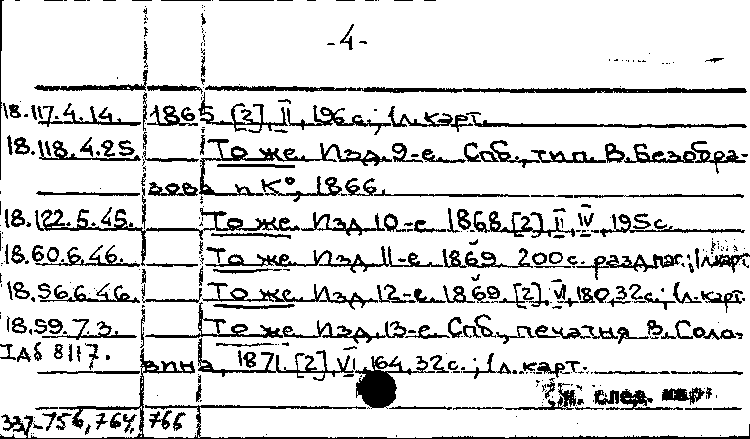 -4-
18.117.4.14. 1865. [2], II, 196 с.; 1 л. карт.
18.118.4.25. То же. Изд. 9-е. Спб., тип. В. Безобра-
зова и К°, 1866.
18.122.5.45. То же. Изд 10-е 1868. [2], II, IV, 195 с.
18.60.6.46. То же. Изд 11-е. 1869. 200 с. разд. паг.; 1 л. карт
18.96.6.46. То же. Изд. 12-е. 1869. [2], VI, 180, 32 с.; 1 л. карт.
18.99.7.3. То же. Изд. 13-е. Спб., печатня В. Голо-
IAб 8117. вина, 1871. [2], VI, 164, 32 с.; 1 л. карт.
след.
337-756, 764, 766